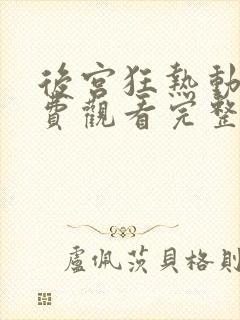 後宮狂熱動
費觀看完整
盧佩茨貝格則